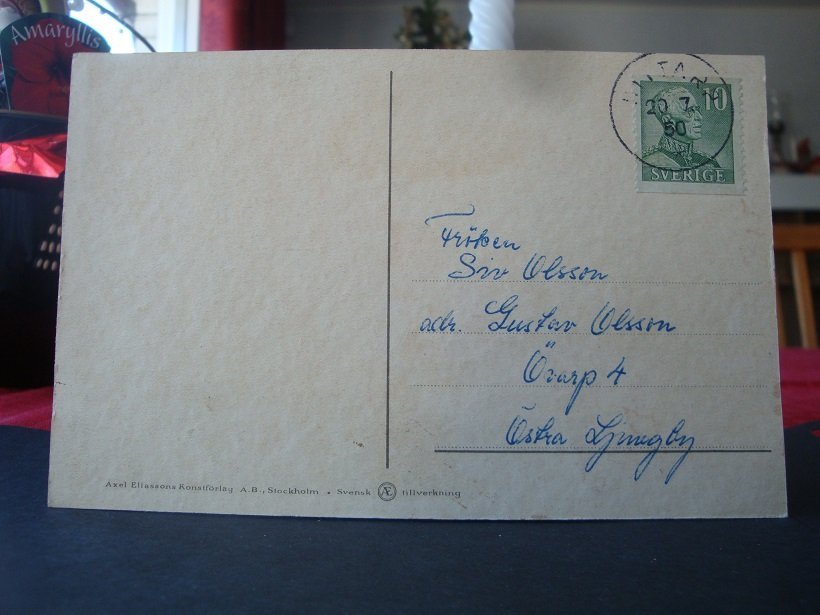 Amaryllis
10
20 7
50
SVERIGE
Fröken
Siv Olsson
adr. Gustav Olsson
Övarp 4
Östra Ljungby
Axel Eliassons Konstförlag A.B., Stockholm • Svensk Æ tillverkning